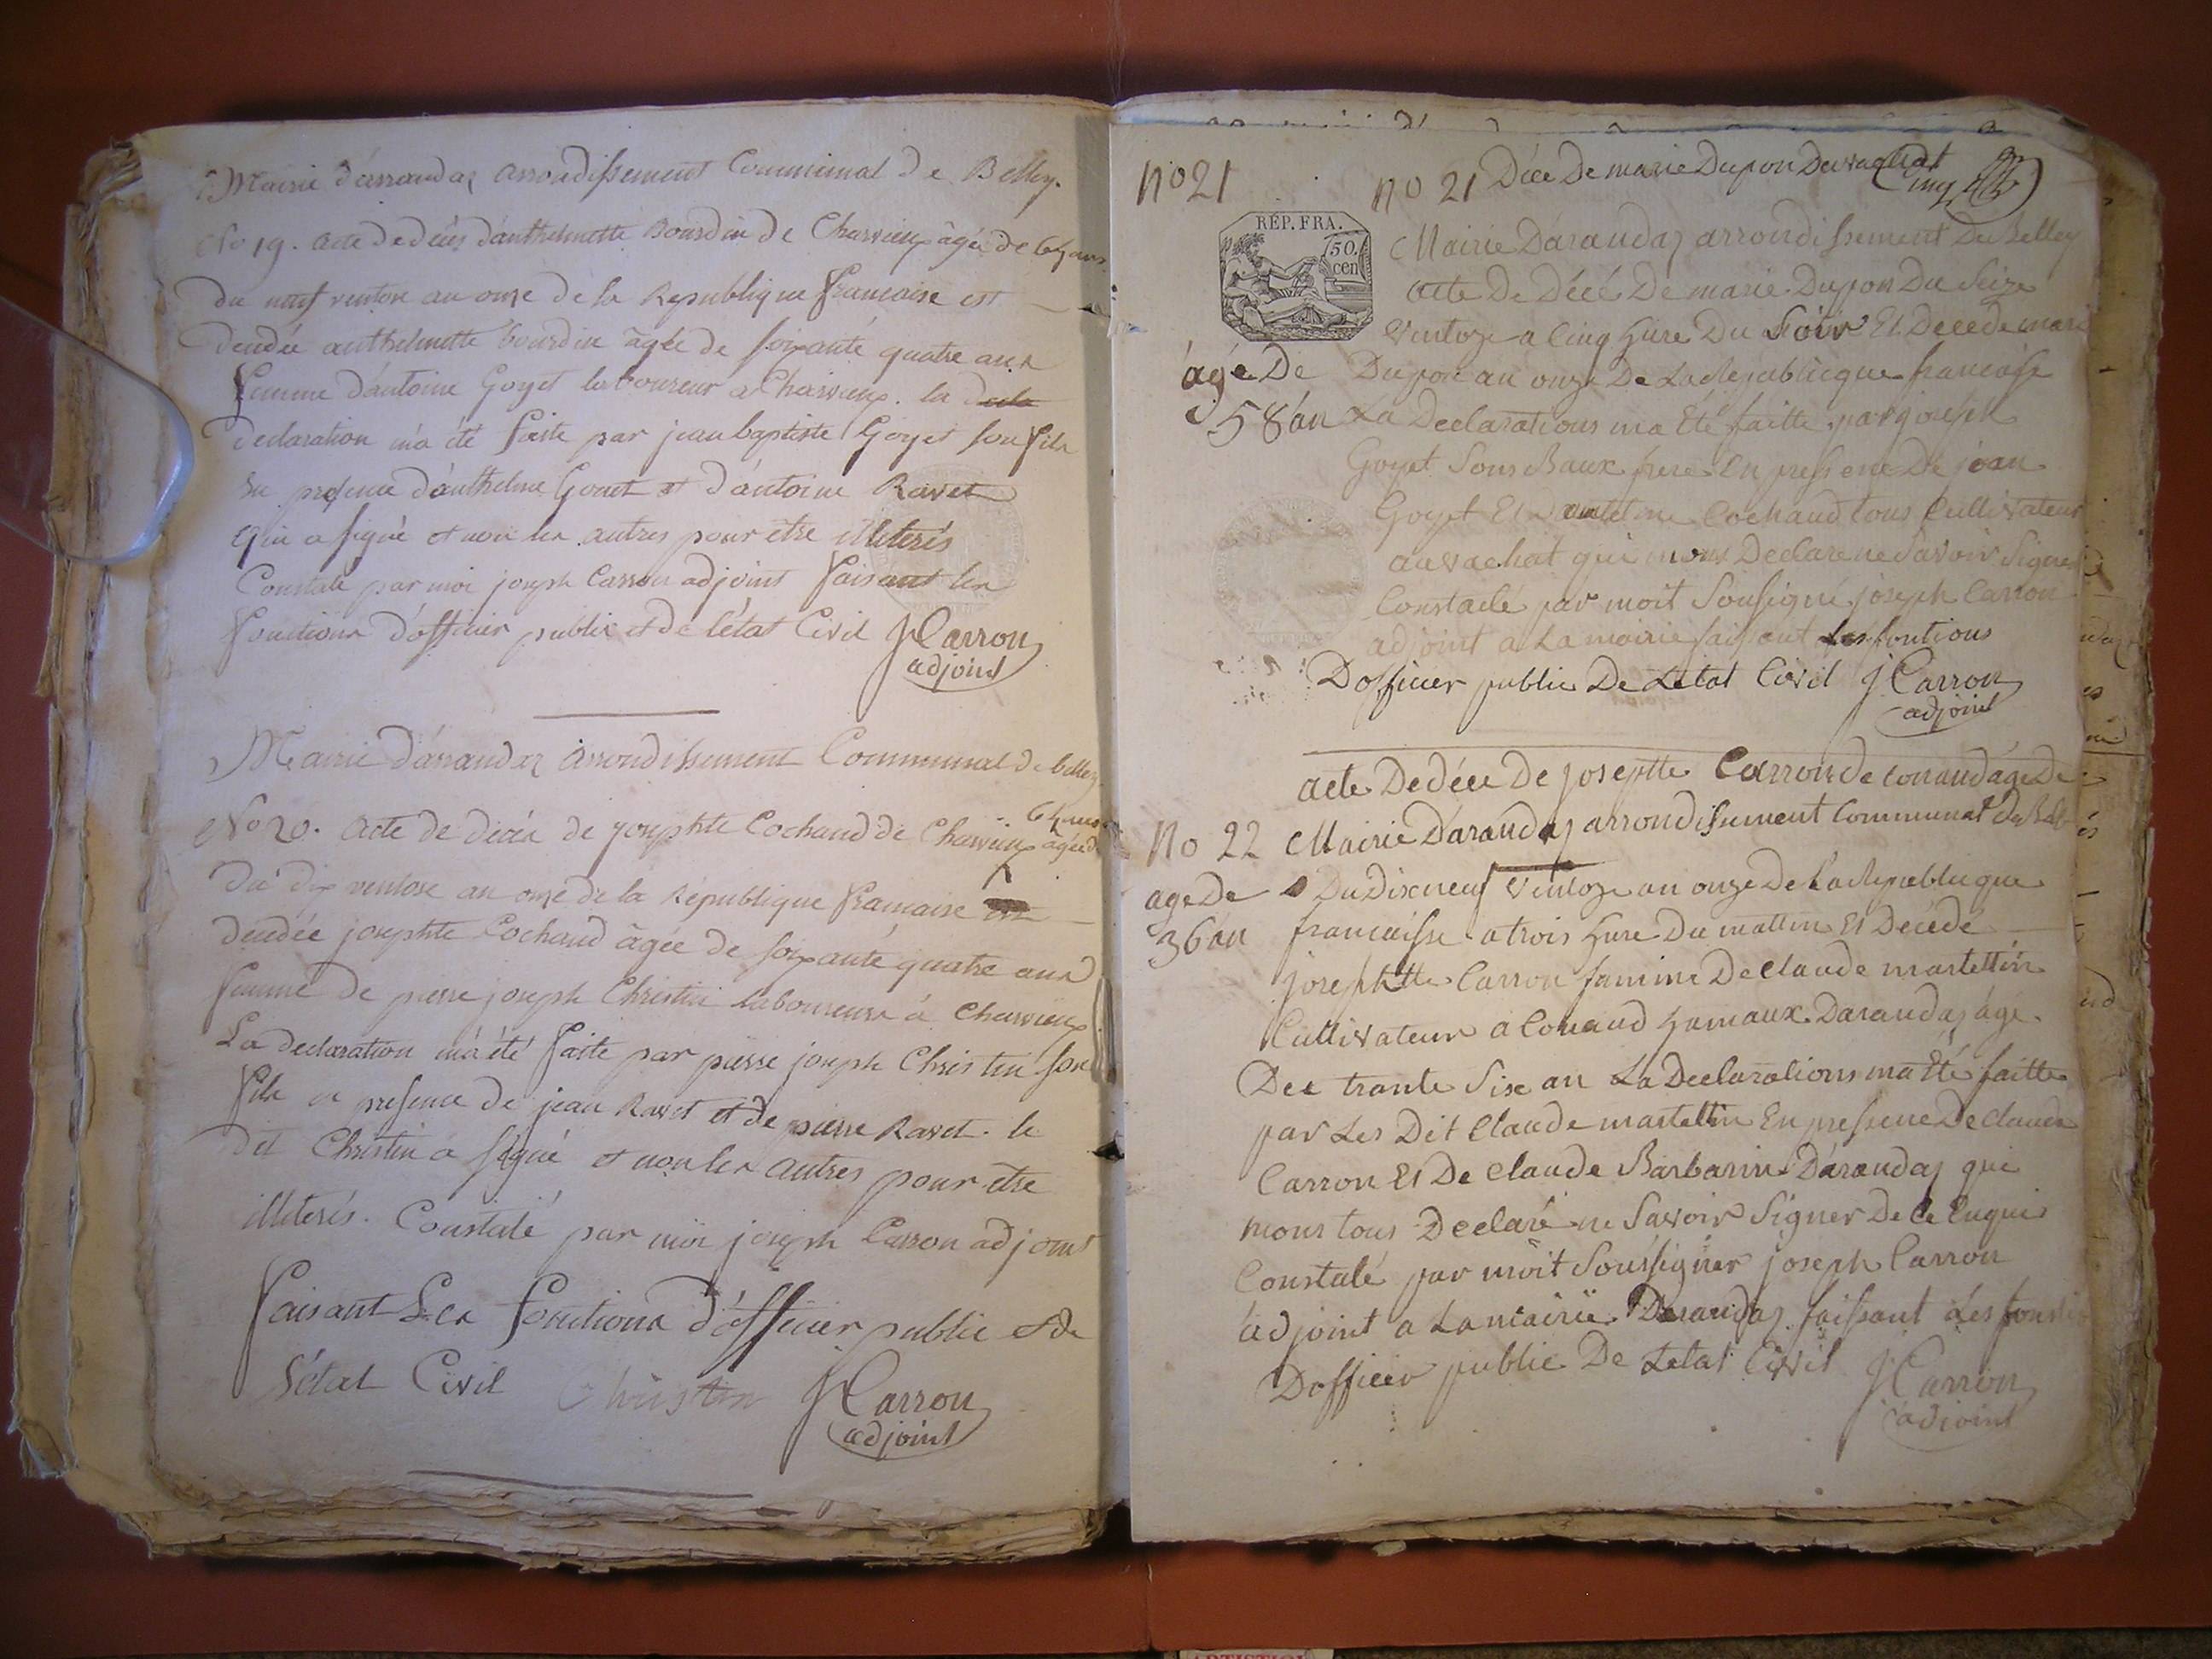 Mairie d'arrandaz arrondissement Communal de Belley.
No 19. acte de décès d'anthelmette Bourdin de Charvieux âgée de 64 ans
du neuf ventose an onze de la Republique francaise est
décédée anthelmette bourdin âgée de soixante quatre ans
femme d'antoine Goyet laboureur a Charvieux. la
declaration m'a été faite par jean baptiste Goyet son fils
en presence d'anthelme Gonet et d'antoine Ravet
qui a signé et non les autres pour etre illiterés
Constaté par moi joseph Carron adjoint faisant les
fonctions d'officier public et de l'état Civil JCarron
adjoint
Mairie d'arrandaz arrondissement Communal de belley
64 ans
No 20. acte de décès de josephte Cochaud de Charvieux âgée de
du dix ventose an onze de la République francaise est
décédée josephte Cochaud âgée de soixante quatre ans
femme de pierre joseph Christin laboureur à Charvieux
La declaration m'a été faite par pierre joseph Christin son
fils en presence de jean Ravet et de pierre Ravet. le
dit Christin a signé et non les autres pour etre
illiterés. Constaté par moi joseph Carron adjoint
faisant Les fonctions d'officier public et de
l'état Civil Christin JCarron
adjoint
No 21
no 21 Déce De marie Dupon Du vachat
Cinq
RÉP. FRA.
50. cen
Mairie Darandaz arrondissement De Belley
acte De Décé De marie Dupon Du Seize
Ventoze a Cinq hure Du Soir Et Decede marie
âgé De
58 an
Dupon an onze De La Republicque francaisse
La Declarations ma Eté faitte par joseph
Goyet Sons Baux frere En pressene De jean
Goyet Et Cochaud tous Cultivateur
au vachat qui mons Declare ne Savoir Signer
Constaté par moit Sousigné joseph Carron
adjoint a La mairie faissant Les fontions
Dofficier public De Letat Civil JCarron
adjoint
acte De déce De josephtte Carron de Conand âge De
No 22 Mairie Darandaz arrondissement Communal De Bell
age De
36 an
Du Dix neuf Ventoze an onze De La Republicque
francaisse a trois hure Du mattin Et Décede
josephtte Carron famme De Claude martettin
Cultivateur a Conand hamaux Darandaz âge
Dee trante Six an La Declarations ma Eté faitte
par Les Dit Claude martettin En pressene De Claude
Carron Et De Claude Barbarin Darandaz qui
mons tous Declaré ne Savoir Signer De Ce Enquis
Constaté par moit Soussigner joseph Carron
adjoint a La mairie Darandaz faissant Les fonti
Dofficier public De Letat Civil JCarron
adjoint